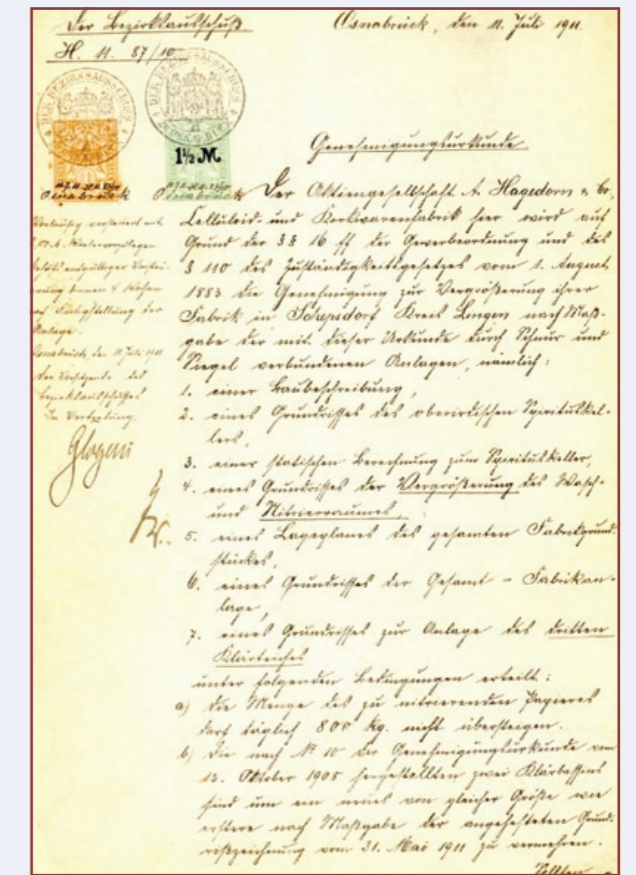 Der Bezirksausschuß.
Osnabrück, den 11. Juli 1911.
H. 11. 87/10
DER BEZIRKSAUSSCHUSS
ZU OSNABRÜCK
DER BEZIRKSAUSSCHUSS
ZU OSNABRÜCK
1½ M.
Osnabrück
Osnabrück
Genehmigungsurkunde.
Der Aktiengesellschaft A. Hagedorn & Co
Celluloid- und Korkwarenfabrik hier wird auf
Grund der §§ 16 ff der Gewerbeordnung und des
§ 110 des Zuständigkeitsgesetzes vom 1. August
1883 die Genehmigung zur Vergrößerung ihrer
Fabrik in Schepsdorf Kreis Lingen nach Maß-
gabe der mit dieser Urkunde durch Schnur und
Siegel verbundenen Anlagen, nämlich:
1. einer Baubeschreibung,
2. eines Grundrisses des oberirdischen Spirituskel-
lers,
3. einer statischen Berechnung zum Spirituskeller,
4. eines Grundrisses der Vergrößerung des Wasch-
und Nitrierraumes.
5. eines Lageplanes des gesamten Fabrikgrund-
stückes,
6. eines Grundrisses der Gesamt-Fabrikan-
lage,
7. eines Grundrisses zur Anlage des dritten
Klärteiches
unter folgenden Bedingungen erteilt:
a) die Menge des zu nitrierenden Papieres
darf täglich 800 kg. nicht übersteigen.
b) Die nach № 10 der Genehmigungsurkunde vom
13. Oktober 1905 hergestellten zwei Klärbassins
sind um ein neues von gleicher Größe wie
erstere nach Maßgabe der angehefteten Grund-
rißzeichnung vom 31. Mai 1911 zu vermehren.
Sollten
binnen 4 Wochen
nach Fertigstellung der
Anlage.
Osnabrück, den 11 Juli 1911
Der Vorsitzende des
Bezirksausschusses
In Vertretung.